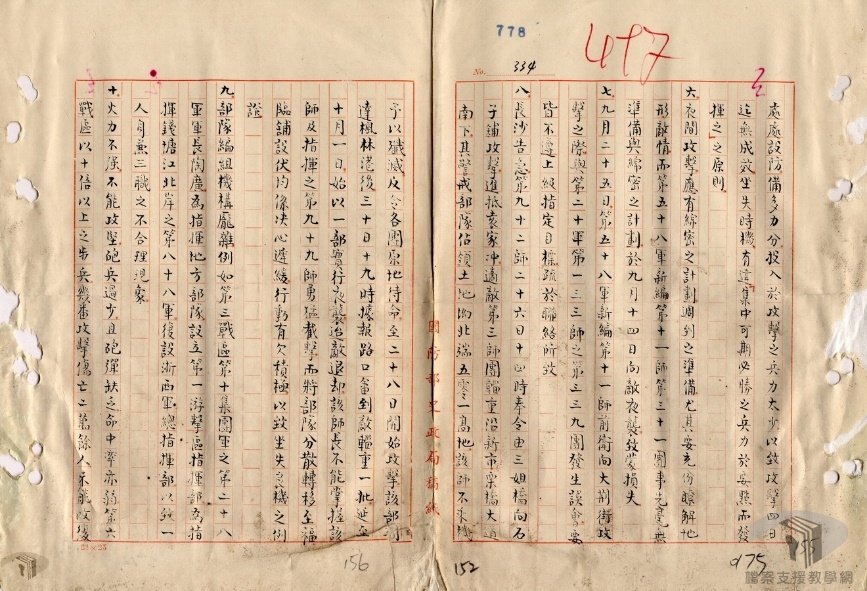 778
417
No. 334
處處設防備多力分投入於攻擊之兵力太少以致攻擊四日
迄無成效坐失時機有違集中可期必勝之兵力於要點而發
揮之之原則
六夜間攻擊應有綿密之計劃週到之準備尤其要充份瞭解地
形敵情而第五十八軍新編第十一師第三十一團事先毫無
準備與綿密之計劃於九月十四日向敵夜襲致蒙損失
七九月二十五日第五十八軍新編第十一師前衛向大荆街攻
擊之際與第二十軍第一三三師之第三三九團發生誤會要
皆不遵上級指定目標疏於聯絡所致
八長沙告急第九十二師二十六日十四時奉令由三姐橋向石
子鋪攻擊進抵袁家冲適敵第三師團輜重沿新市栗橋大道
南下其警戒部隊佔領土地坳北端五零一高地該師不乘機
予以殲滅反令各團原地待命至二十八日開始攻擊該部到
達楓林港後三十日十九時據報路口畬到敵輜重一批延至
十月一日始以一部實行夜襲迨敵退却該師長不能掌握該
師及指揮之第九十九師勇猛截擊而將部隊分散轉移至福
臨舖設伏均係决心遲緩行動有欠積極以致坐失良機之例
證
九部隊編組機構龐雜例如第三戰區第十集團軍之第二十八
軍軍長陶廣為指揮地方部隊設立第一游擊區指揮部為指
揮錢塘江北岸之第八十八軍後設浙西軍總指揮部以致一
人身兼三職之不合理現象
十火力不强不能攻堅砲兵過少且砲彈缺乏命中率亦弱第六
戰區以十倍以上之步兵幾番攻擊傷亡二萬餘人不能收復
國防部史政局稿紙
25×25
156
152
175
檔案支援教學網